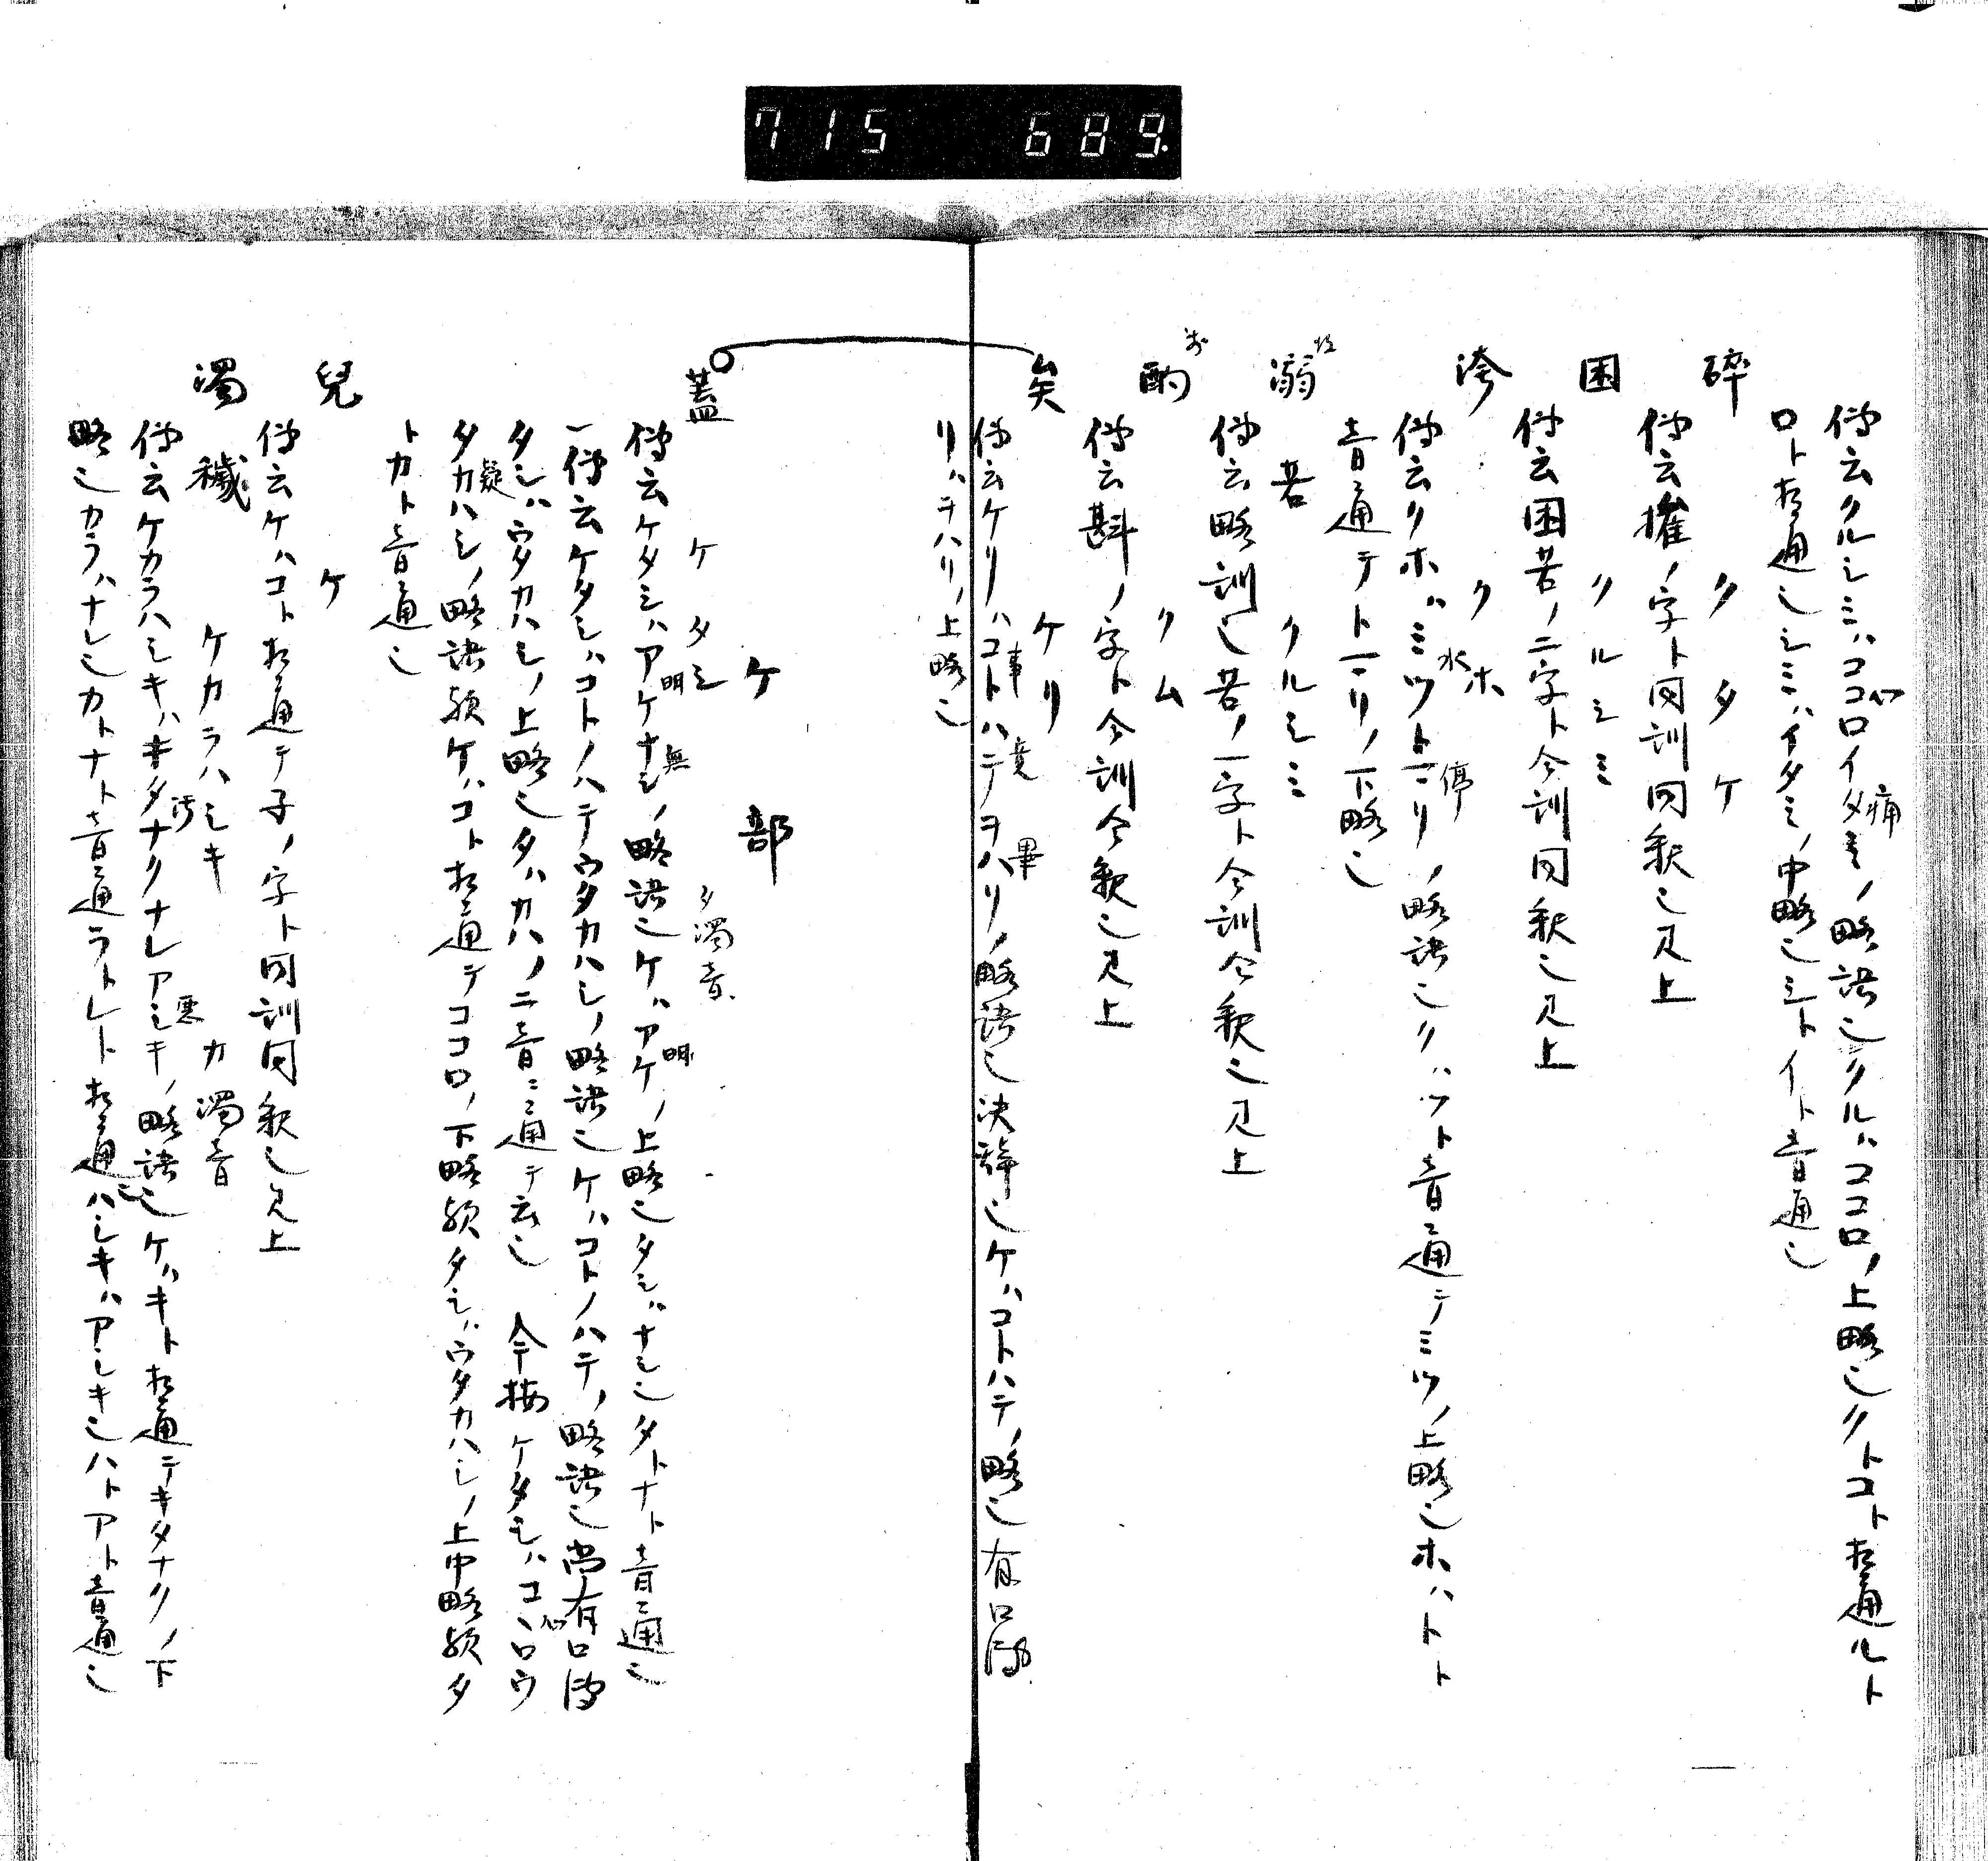 715 689.
傳云クルシミハココロイタミノ略語也クルハココロノ上略也クトコト相通ルト
心 痛
ロト相通也シミハイタミノ中略也シトイト音通也
碎 クタケ
傳云摧ノ字ト同訓同釈也見上
困 クルシミ
傳云困苦ノ二字ト今訓同釈也見上
洿 クホ
傳云クホハミツトマリノ略語也クハツト音通テミツノ上略也ホハトト
水 停
音通テトマリノ下略也
溺苦 クルシミ
傳云略訓也苦ノ一字ト今訓今釈也見上
酌 クム
傳云斟ノ字ト今訓今釈也見上
矣 ケリ
傳云ケリハコトハテヲハリノ略語也決辞也ケハコトハテノ略也有口傳
事 竟 畢
リハヲハリノ上略也
ケ部
蓋 ケタシ タ濁音
傳云ケタシハアケナシノ略語也ケハアケノ上略也タシハナシ也タトナト音通也
明 無 明
一傳云ケタシハコトノハテウタカハシノ略語也ケハコトノハテノ略語也尚有口傳
タシハウタカハシノ上略也タハカハノ二音ニ通テ云也 今按ケタシハココロウ
疑 心
タカハシノ略語歟ケハコト相通テココロノ下略歟タシハウタカハシノ上中略歟タ
トカト音通也
兒 ケ
傳云ケハコト相通テ子ノ字ト同訓同釈也見上
濁穢 ケカラハシキ カ濁音
傳云ケカラハシキハキタナクナレアシキノ略語也ケハキト相通テキタナクノ下
汚 悪
略也カラハナレ也カトナト音通ラトレト相通也ハシキハアシキ也ハトアト音通也